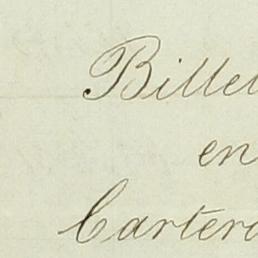 Billet
en
Cartera